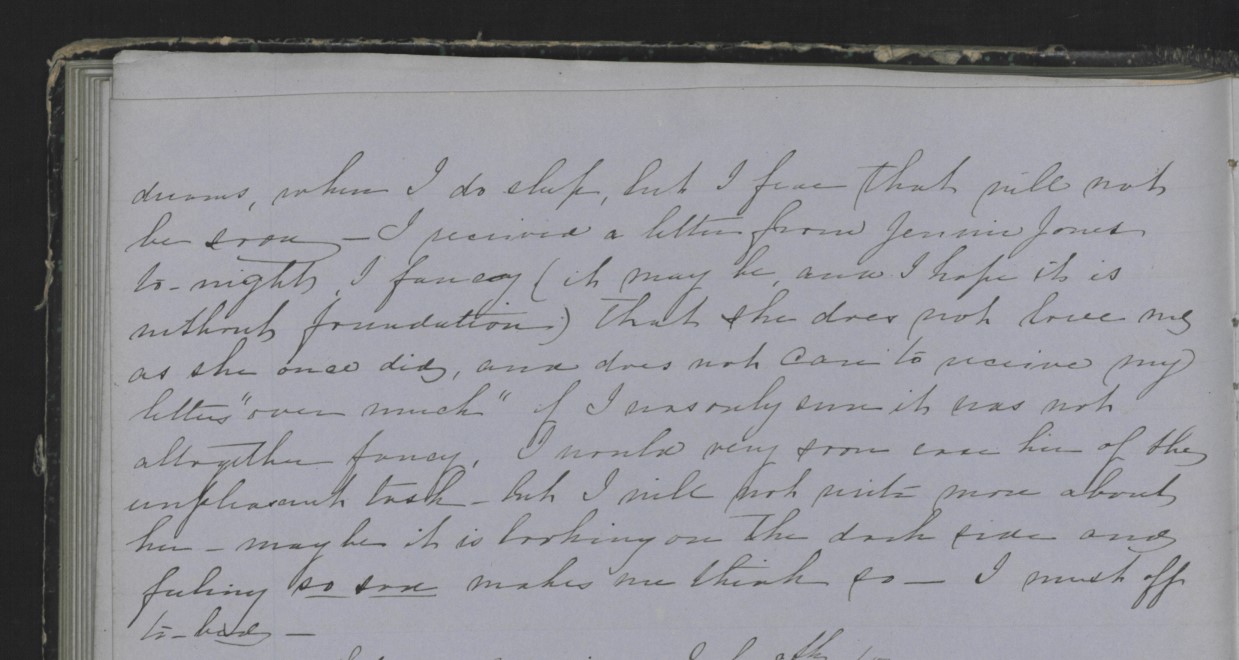 dreams, when I do sleep, but I fear that will not
be soon — I received a letter from Jennie Jones
to-night, I fancy (it may be, and I hope it is
without foundation) that she does not love me
as she once did, and does not care to receive my
letters "over much" if I was only sure it was not
altogether fancy, I would very soon ease her of the
unpleasant task — but I will not write more about
her — maybe it is looking on the dark side and
feeling so sad makes me think so — I must off
to-bed —